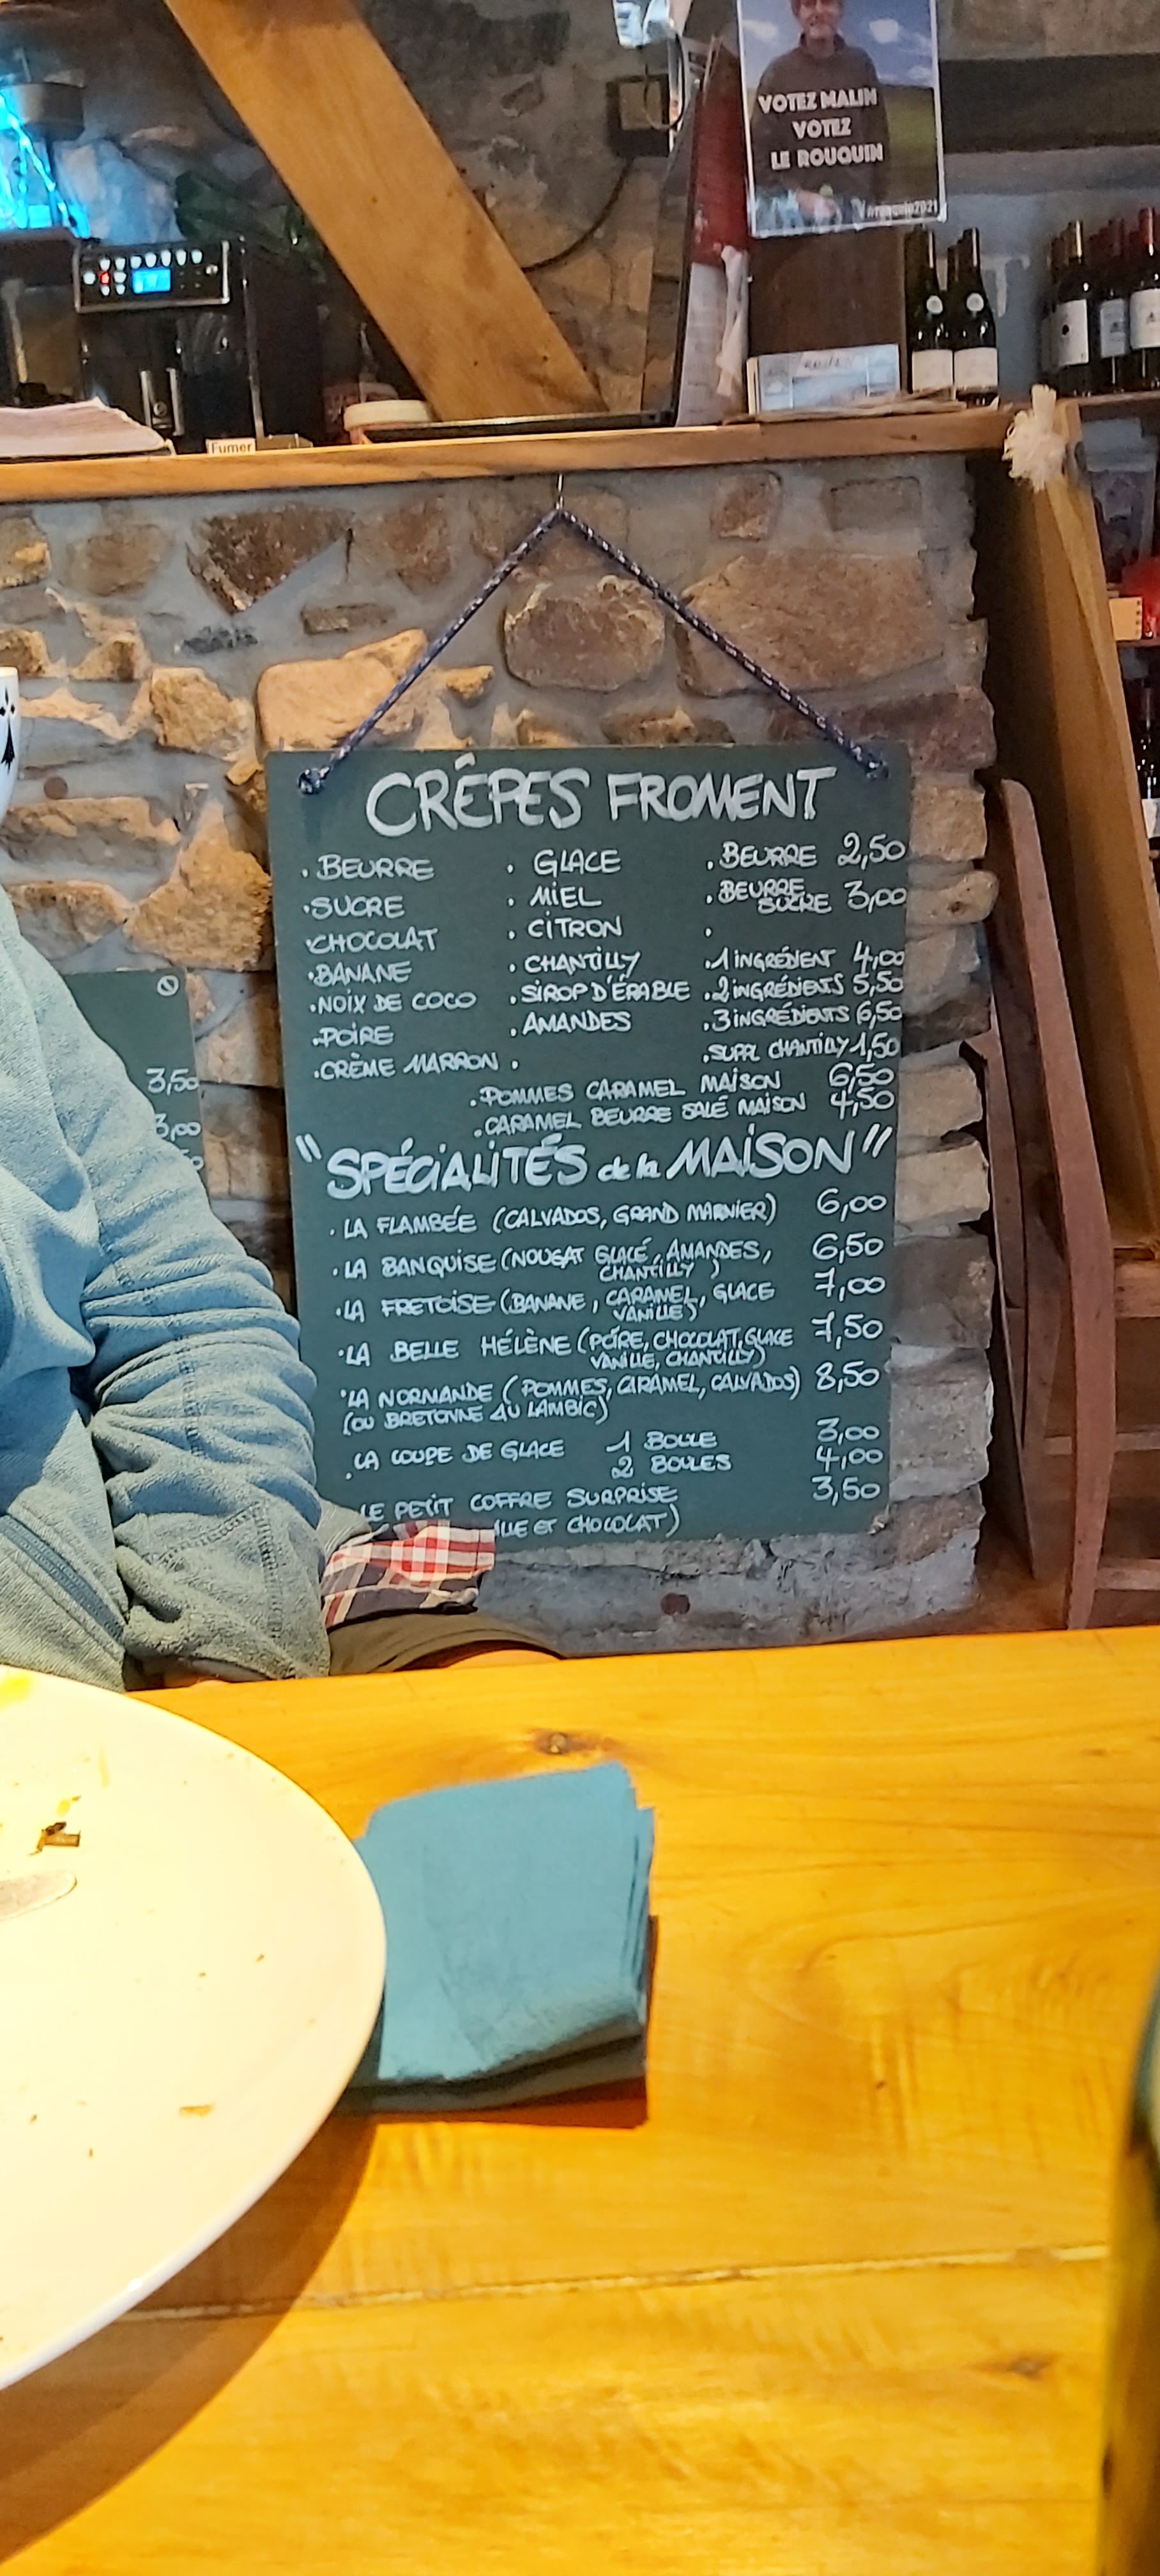 VOTEZ MALIN
VOTEZ
LE ROUQUIN
Fumer
CRÊPES FROMENT
. BEURRE . GLACE . BEURRE 2,50
. SUCRE . MIEL . BEURRE SUCRE 3,00
. CHOCOLAT . CITRON .
. BANANE . CHANTILLY . 1 INGRÉDIENT 4,00
. NOIX DE COCO . SIROP D'ÉRABLE . 2 INGRÉDIENTS 5,50
. POIRE . AMANDES . 3 INGRÉDIENTS 6,50
. CRÈME MARRON . . SUPPL CHANTILLY 1,50
. POMMES CARAMEL MAISON 6,50
. CARAMEL BEURRE SALÉ MAISON 4,50
"SPÉCIALITÉS de la MAISON"
. LA FLAMBÉE (CALVADOS, GRAND MARNIER) 6,00
. LA BANQUISE (NOUGAT GLACÉ, AMANDES, 6,50
CHANTILLY)
. LA FRETOISE (BANANE, CARAMEL, GLACE 7,00
VANILLE)
. LA BELLE HÉLÈNE (POIRE, CHOCOLAT, GLACE 7,50
VANILLE, CHANTILLY)
. LA NORMANDE (POMMES, CARAMEL, CALVADOS) 8,50
(OU BRETONNE AU LAMBIC)
. LA COUPE DE GLACE 1 BOULE 3,00
2 BOULES 4,00
LE PETIT COFFRE SURPRISE 3,50
ET CHOCOLAT)
3,50
3,00